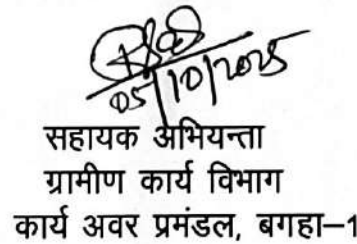 05/10/2025
सहायक अभियन्ता
ग्रामीण कार्य विभाग
कार्य अवर प्रमंडल, बगहा–1